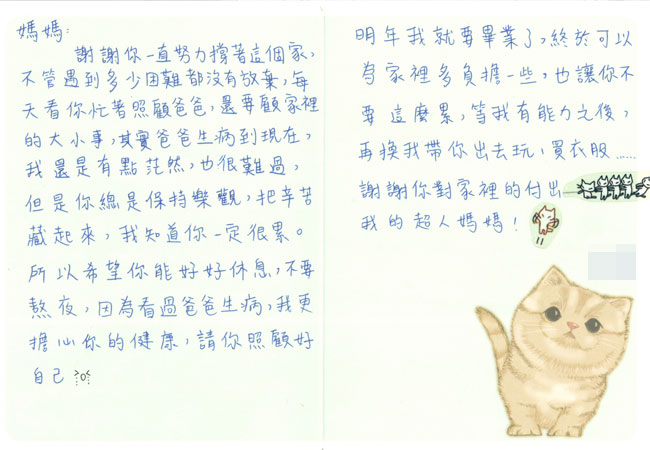 媽媽:
謝謝你一直努力撐著這個家,
不管遇到多少困難都沒有放棄,每
天看你忙著照顧爸爸,還要顧家裡
的大小事,其實爸爸生病到現在,
我還是有點茫然,也很難過,
但是你總是保持樂觀,把辛苦
藏起來,我知道你一定很累。
所以希望你能好好休息,不要
熬夜,因為看過爸爸生病,我更
擔心你的健康,請你照顧好
自己
明年我就要畢業了,終於可以
為家裡多負擔一些,也讓你不
要這麼累,等我有能力之後,
再換我帶你出去玩,買衣服……
謝謝你對家裡的付出
我的超人媽媽!